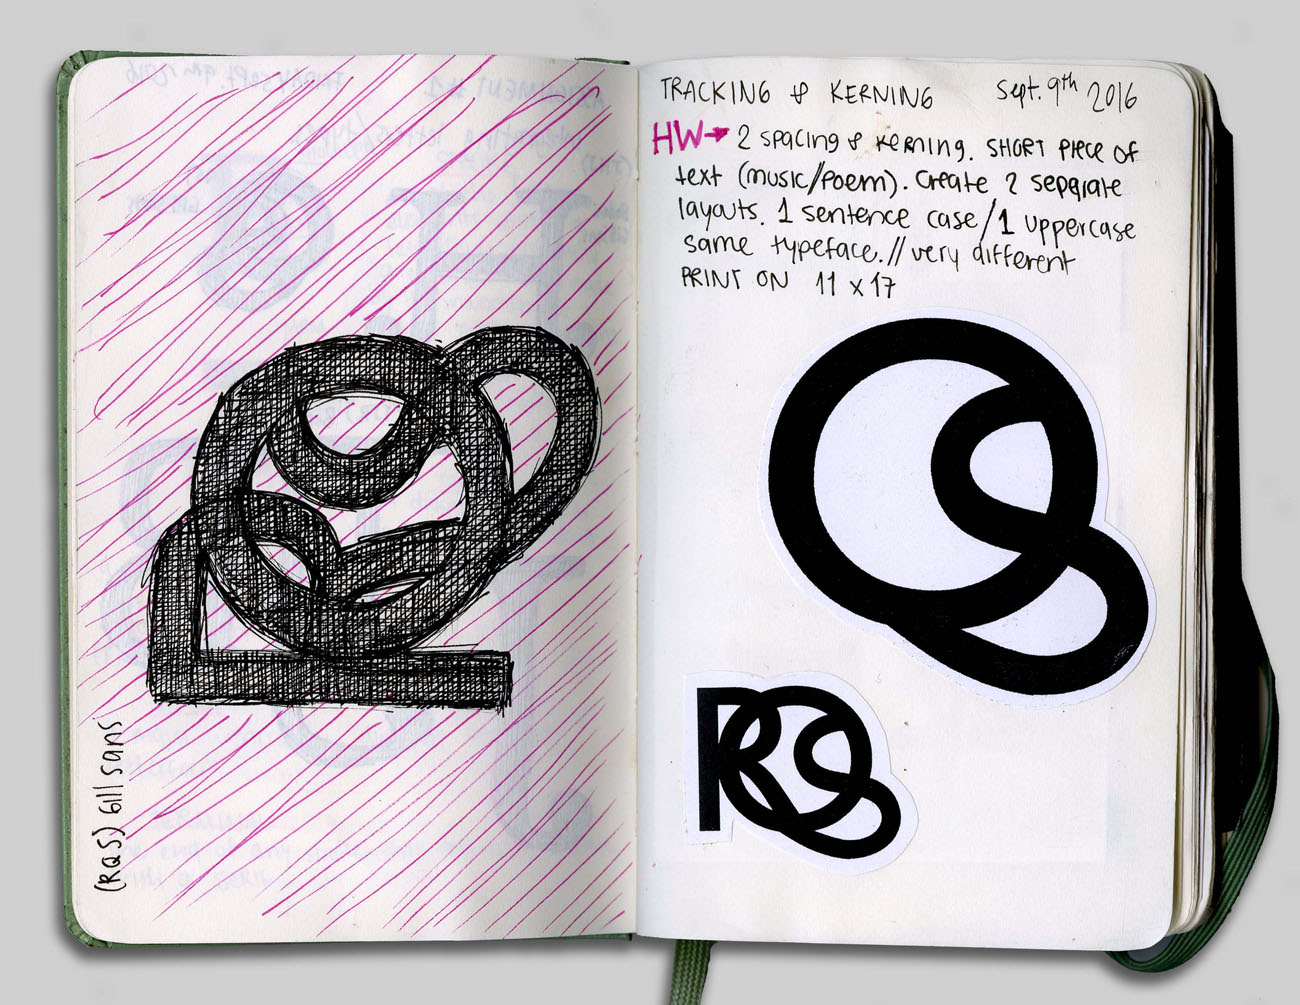 (RQS) Gill sans
TRACKING & KERNING Sept. 9th 2016
HW→ 2 spacing & kerning. SHORT piece of
text (music/poem). Create 2 separate
layouts. 1 sentence case/1 uppercase
same typeface.// very different
PRINT ON 11 x 17
QS
RQS